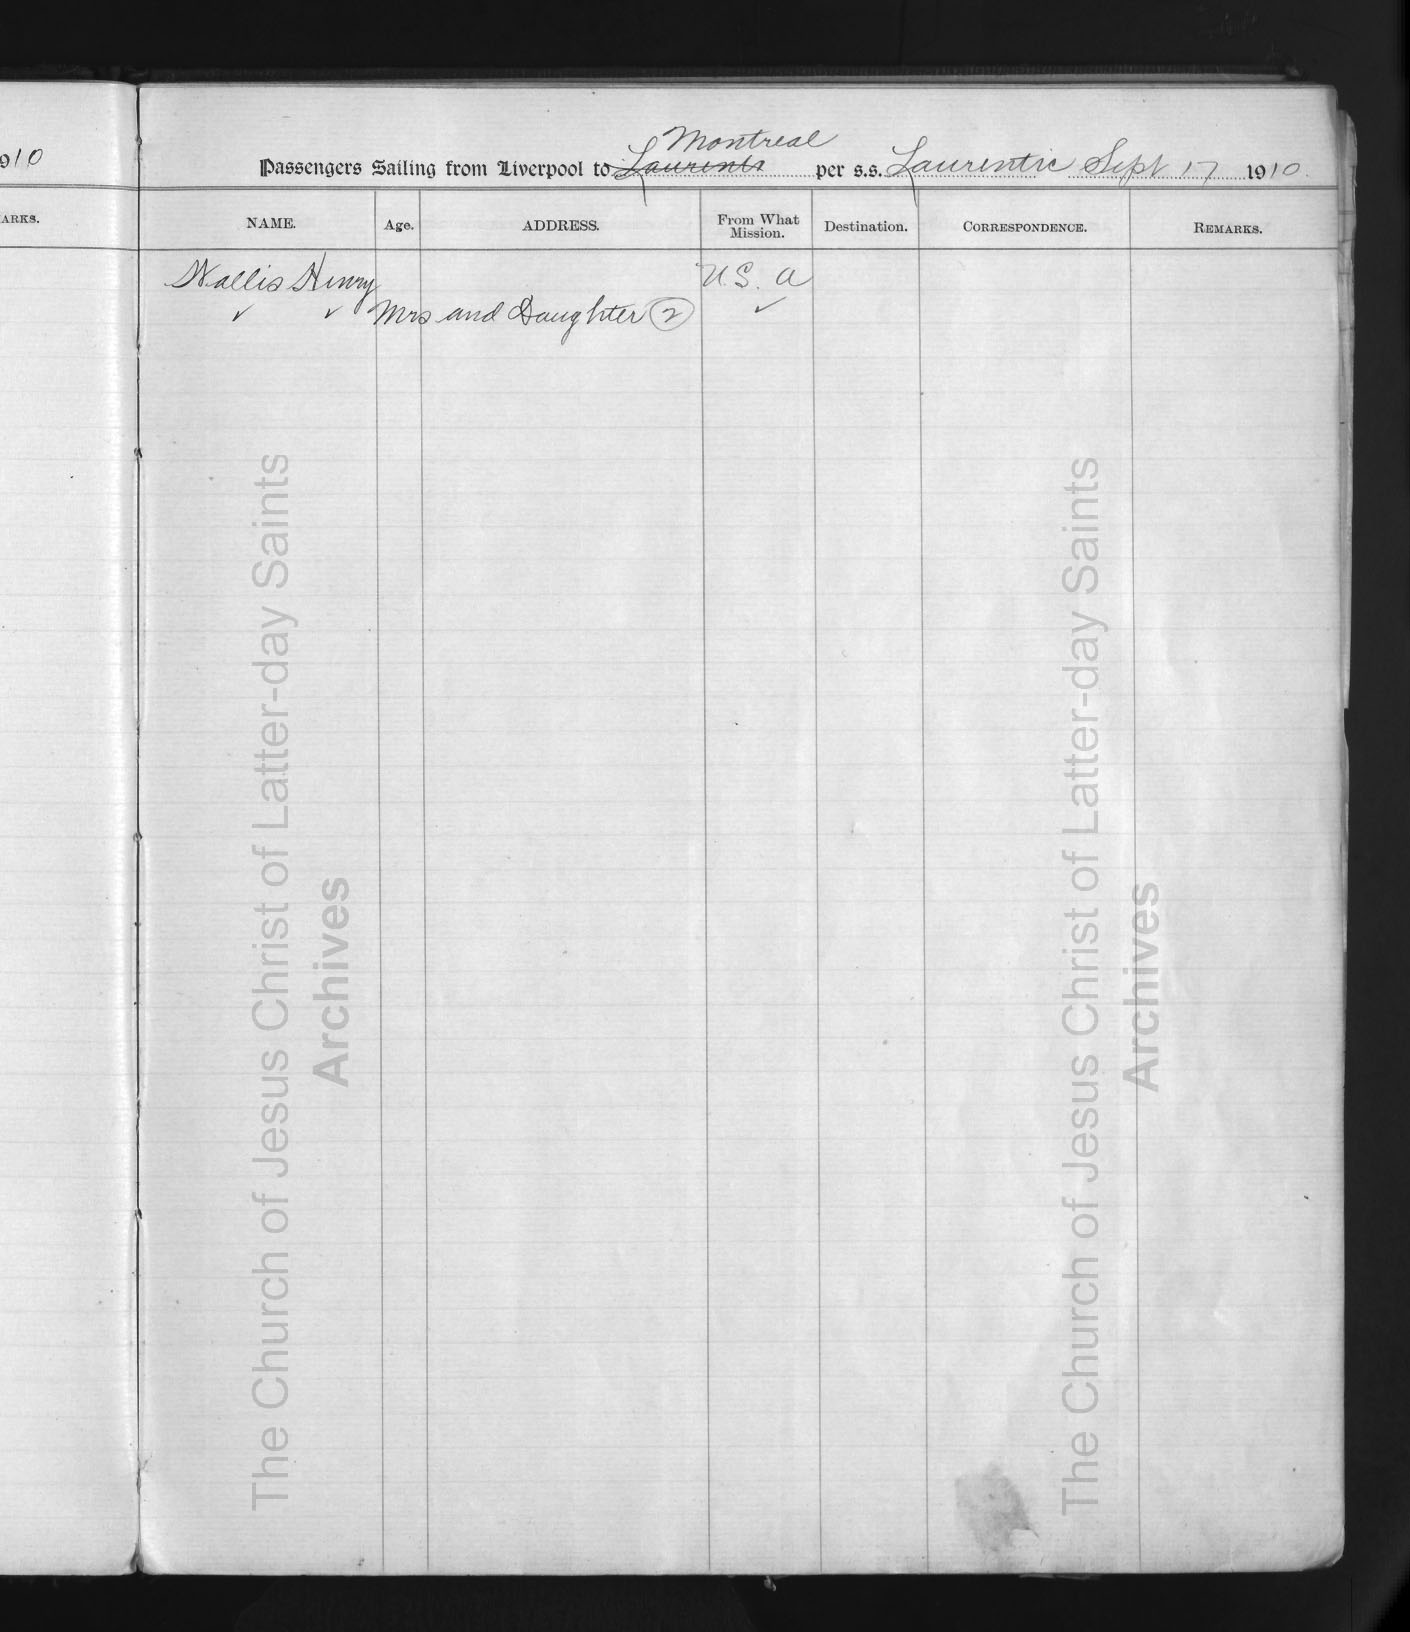 910
ARKS.
Montreal
Passengers Sailing from Liverpool to Laurenti per s.s. Laurentic Sept 17 1910.
NAME. Age. ADDRESS. From What Mission. Destination. CORRESPONDENCE. REMARKS.
Wallis Henry U.S.A
✓ ✓ Mrs and Daughter 2 ✓
The Church of Jesus Christ of Latter-day Saints
Archives
The Church of Jesus Christ of Latter-day Saints
Archives